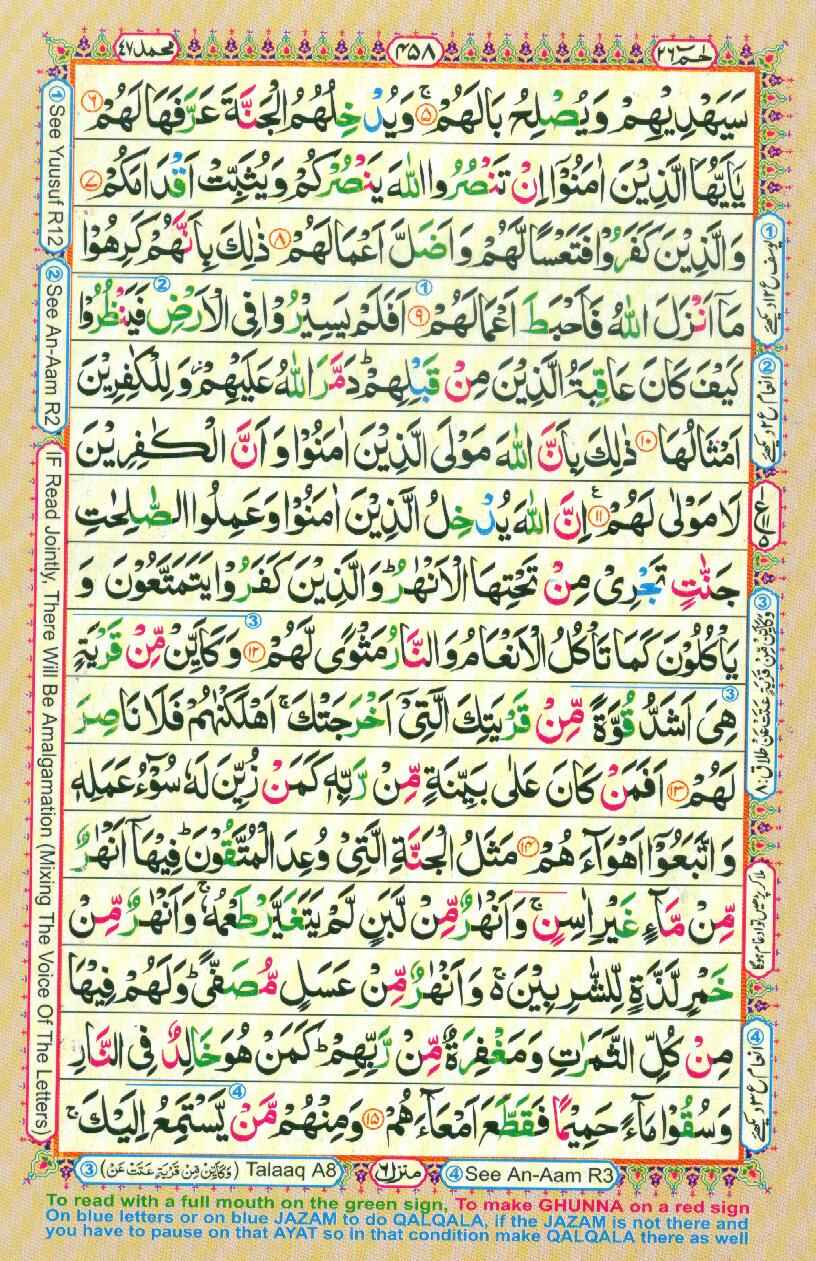 محمد ٤٧
٤٥٨
حٰمٓ ٢٦
سَيَهْدِيْهِمْ وَيُصْلِحُ بَالَهُمْ ۚ‏﴿۵﴾ وَيُدْخِلُهُمُ الْجَنَّةَ عَرَّفَهَا لَهُمْ ﴿۶﴾
يٰٓاَيُّهَا الَّذِيْنَ اٰمَنُوْٓا اِنْ تَنْصُرُوا اللّٰهَ يَنْصُرْكُمْ وَيُثَبِّتْ اَقْدَامَكُمْ ﴿۷﴾
وَالَّذِيْنَ كَفَرُوْا فَتَعْسًا لَّهُمْ وَاَضَلَّ اَعْمَالَهُمْ ﴿۸﴾ ذٰلِكَ بِاَنَّهُمْ كَرِهُوْا
مَآ اَنْزَلَ اللّٰهُ فَاَحْبَطَ اَعْمَالَهُمْ ﴿۹﴾ اَفَلَمْ يَسِيْرُوْا فِى الْاَرْضِ فَيَنْظُرُوْا
كَيْفَ كَانَ عَاقِبَةُ الَّذِيْنَ مِنْ قَبْلِهِمْ ؕ دَمَّرَ اللّٰهُ عَلَيْهِمْ ؗ وَلِلْكٰفِرِيْنَ
اَمْثَالُهَا ﴿۱۰﴾ ذٰلِكَ بِاَنَّ اللّٰهَ مَوْلَى الَّذِيْنَ اٰمَنُوْا وَاَنَّ الْكٰفِرِيْنَ
لَا مَوْلٰى لَهُمْ ﴿۱۱﴾ اِنَّ اللّٰهَ يُدْخِلُ الَّذِيْنَ اٰمَنُوْا وَعَمِلُوا الصّٰلِحٰتِ
جَنّٰتٍ تَجْرِىْ مِنْ تَحْتِهَا الْاَنْهٰرُ ؕ وَالَّذِيْنَ كَفَرُوْا يَتَمَتَّعُوْنَ وَ
يَاْكُلُوْنَ كَمَا تَاْكُلُ الْاَنْعَامُ وَالنَّارُ مَثْوًى لَّهُمْ ﴿۱۲﴾ وَكَاَيِّنْ مِّنْ قَرْيَةٍ
هِىَ اَشَدُّ قُوَّةً مِّنْ قَرْيَتِكَ الَّتِىْٓ اَخْرَجَتْكَ ۚ اَهْلَكْنٰهُمْ فَلَا نَاصِرَ
لَهُمْ ﴿۱۳﴾ اَفَمَنْ كَانَ عَلٰى بَيِّنَةٍ مِّنْ رَّبِّهٖ كَمَنْ زُيِّنَ لَهٗ سُوْٓءُ عَمَلِهٖ
وَاتَّبَعُوْٓا اَهْوَآءَهُمْ ﴿۱۴﴾ مَثَلُ الْجَنَّةِ الَّتِىْ وُعِدَ الْمُتَّقُوْنَ ؕ فِيْهَآ اَنْهٰرٌ
مِّنْ مَّآءٍ غَيْرِ اٰسِنٍ ۚ وَاَنْهٰرٌ مِّنْ لَّبَنٍ لَّمْ يَتَغَيَّرْ طَعْمُهٗ ۚ وَاَنْهٰرٌ مِّنْ
خَمْرٍ لَّذَّةٍ لِّلشّٰرِبِيْنَ ۚ۬ وَاَنْهٰرٌ مِّنْ عَسَلٍ مُّصَفًّى ؕ وَلَهُمْ فِيْهَا
مِنْ كُلِّ الثَّمَرٰتِ وَمَغْفِرَةٌ مِّنْ رَّبِّهِمْ ؕ كَمَنْ هُوَ خَالِدٌ فِى النَّارِ
وَسُقُوْا مَآءً حَمِيْمًا فَقَطَّعَ اَمْعَآءَهُمْ ﴿۱۵﴾ وَمِنْهُمْ مَّنْ يَّسْتَمِعُ اِلَيْكَ ۚ
① See Yuusuf R12
② See An-Aam R2
IF Read Jointly, There Will Be Amalgamation (Mixing The Voice Of The Letters)
① یوسف ع ۱۲ دیکھئے
② انعام ع ۲ دیکھئے
ع ۵
③ وَكَاَيِّنْ مِّنْ قَرْيَةٍ عَتَتْ عَنْ طلاق: ۸
ملا کر پڑھیں تو ادغام ہوگا
④ انعام ع ۳ دیکھئے
③ (وَكَاَيِّنْ مِّنْ قَرْيَةٍ عَتَتْ عَنْ) Talaaq A8
منزل ٦
④ See An-Aam R3
To read with a full mouth on the green sign, To make GHUNNA on a red sign
On blue letters or on blue JAZAM to do QALQALA, if the JAZAM is not there and
you have to pause on that AYAT so in that condition make QALQALA there as well